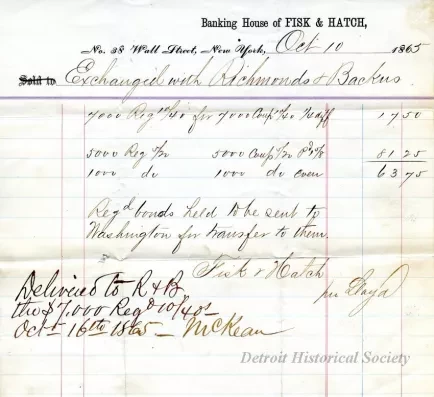 Banking House of FISK & HATCH,
No. 38 Wall Street, New York, Oct 10 1865
Sold to Exchanged with Richmonds & Backus
7000 Reg 10/40 for 7000 Coup 10/40 1/4 diff 17.50
5000 Reg 5/20 5000 Coup 5/20 81.25
1000 do 1000 do even 63.75
Regd bonds held to be sent to
Washington for transfer to them.
Fisk & Hatch
per Lloyd
Delivered to R & B
the $7,000 Regd 10/40s
Oct 16th 1865 – McKean
Detroit Historical Society